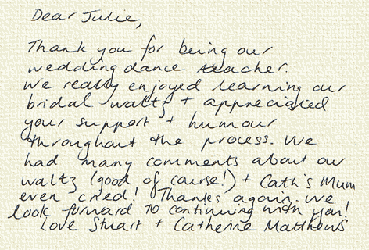 Dear Julie,
Thank you for being our
wedding dance teacher.
We really enjoyed learning our
bridal waltz + appreciated
your support + humour
throughout the process. We
had many comments about our
waltz (good of course!) + Cath's Mum
even cried! Thanks again. We
look forward to continuing with you!
Love Stuart + Catherine Matthews